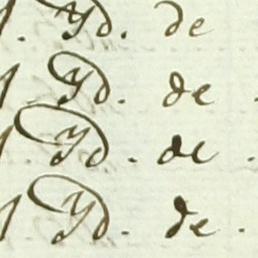 1. Yd. de
1 Yd. de .
1 Yd. de .
1 Yd. de .